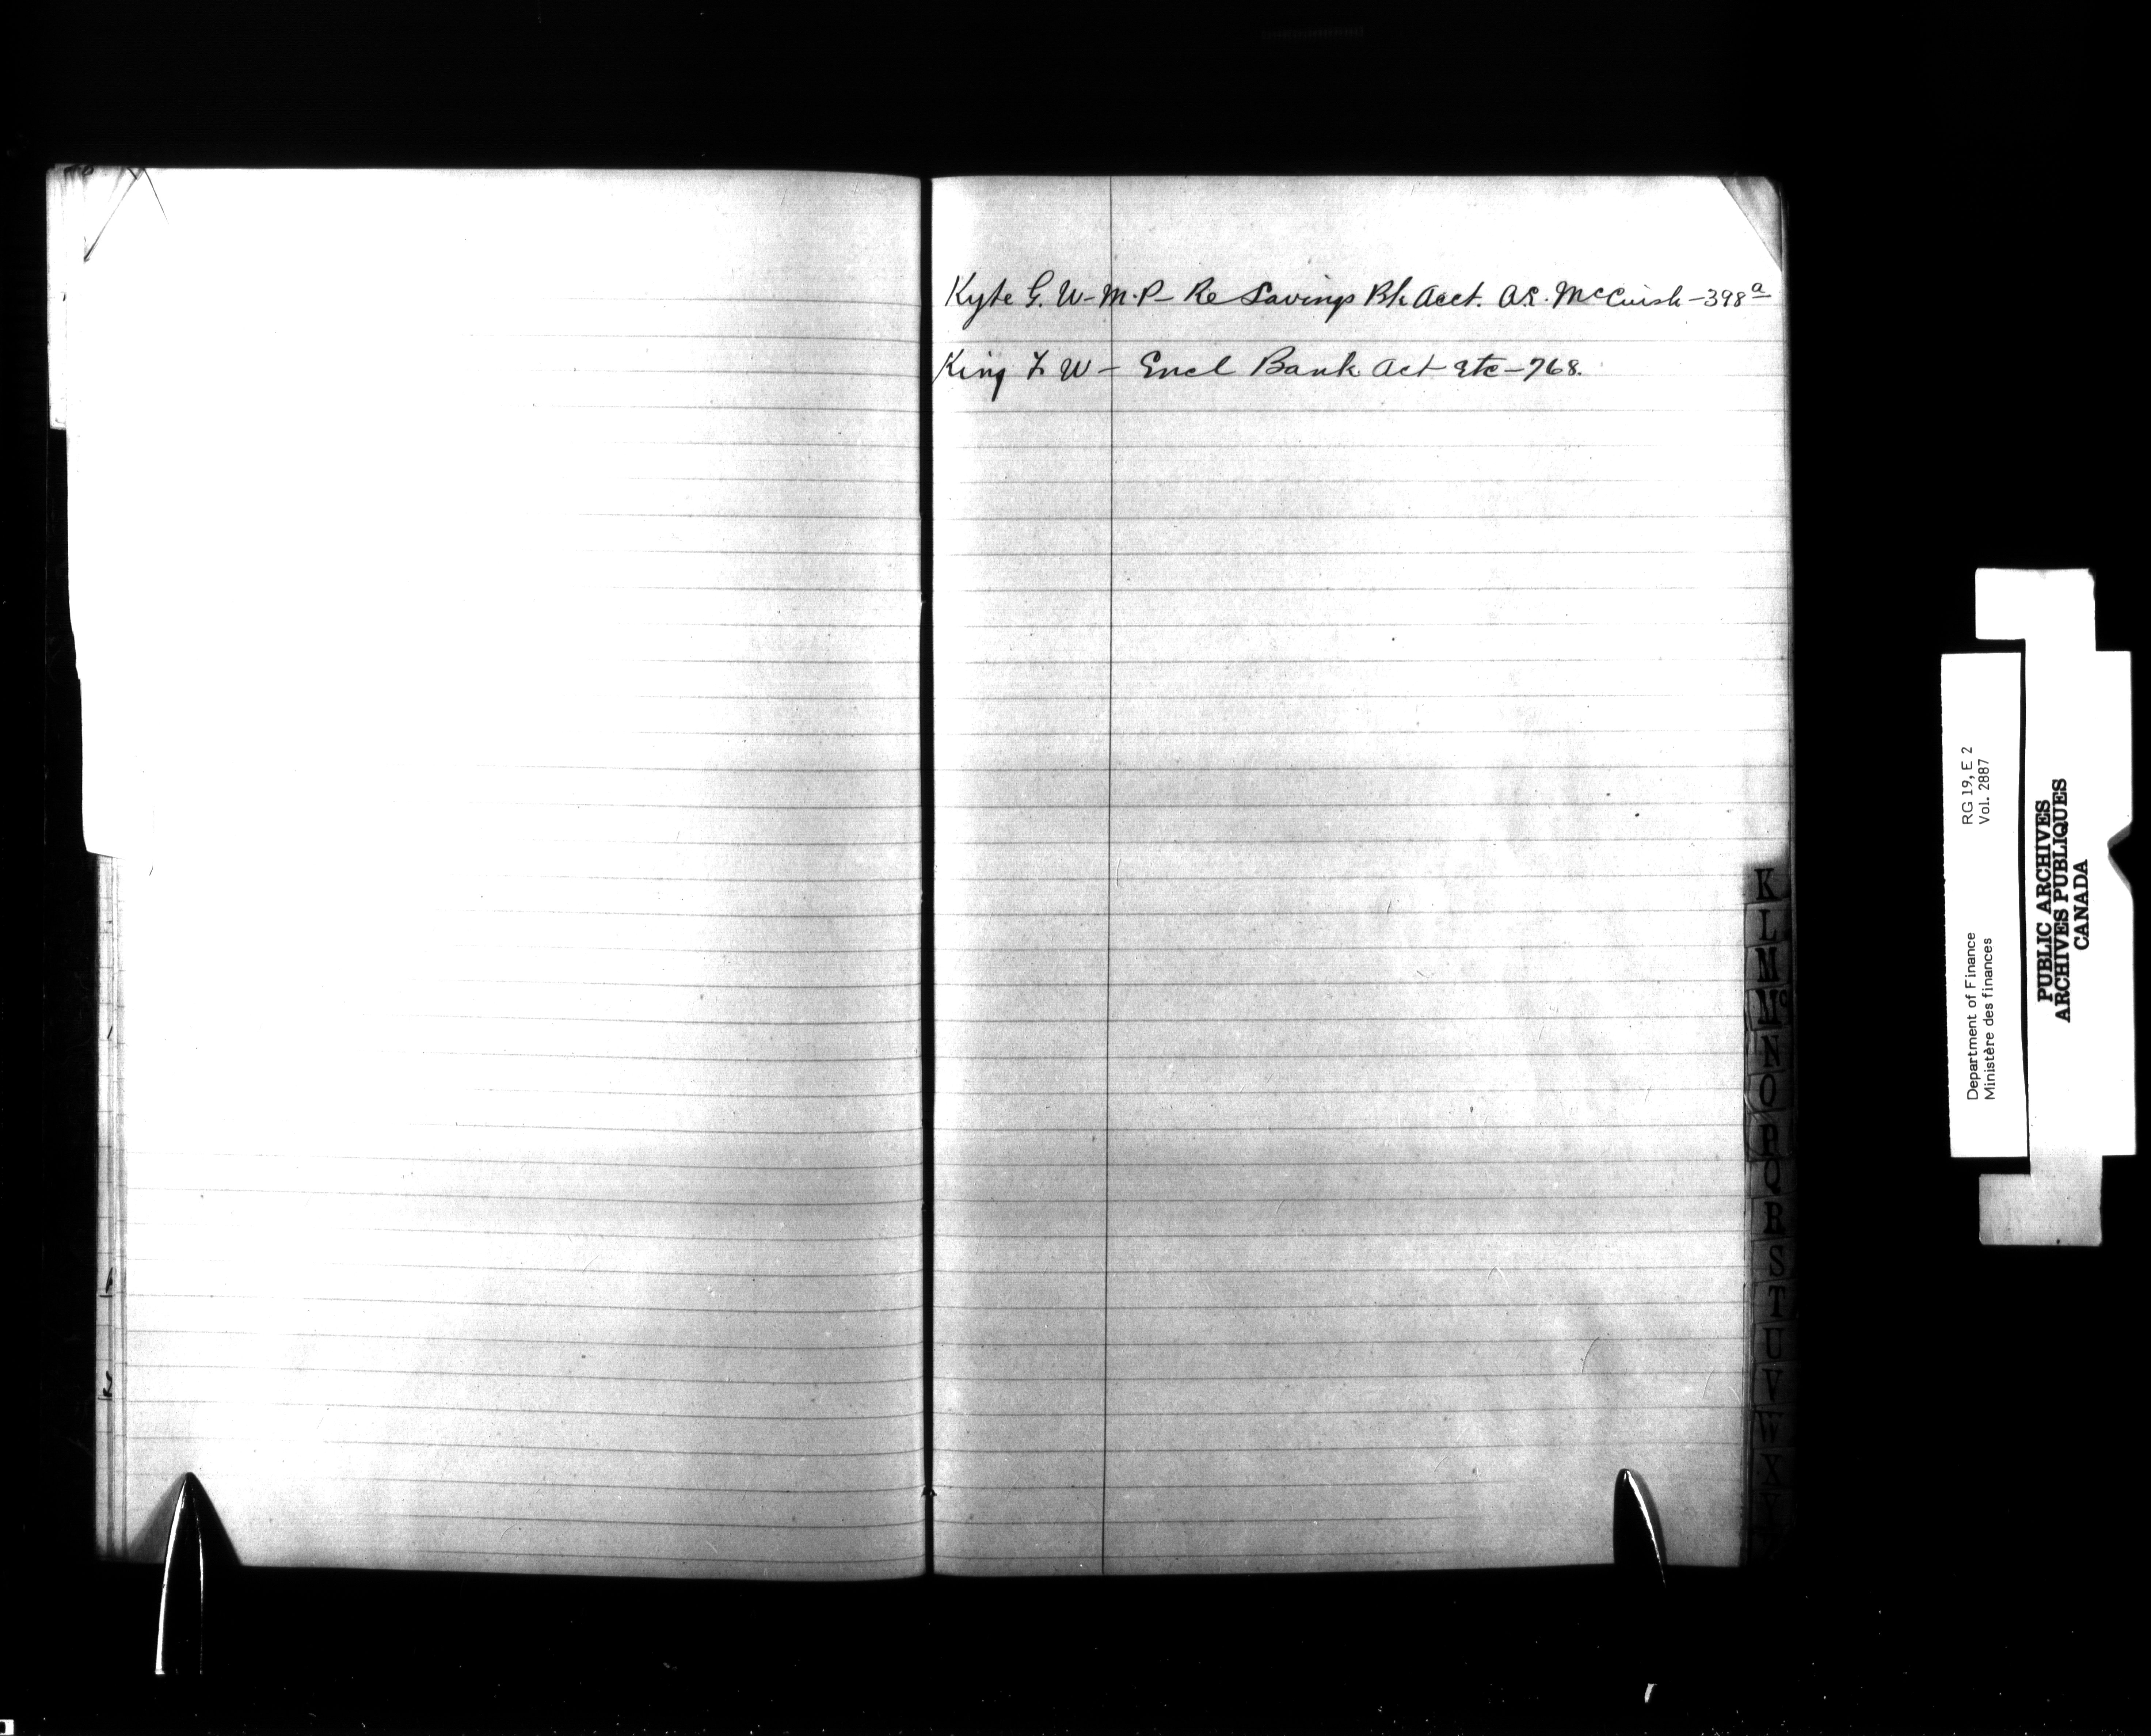 Kyte G. W - M.P - Re Savings Bk Acct. A.R. McCuish - 398a
King F. W - Encl Bank Act etc - 768.
K
L
M
Mc
N
O
P
Q
R
S
T
U
V
W
X
Y
Department of Finance RG 19, E 2
Ministère des finances Vol. 2887
PUBLIC ARCHIVES
ARCHIVES PUBLIQUES
CANADA